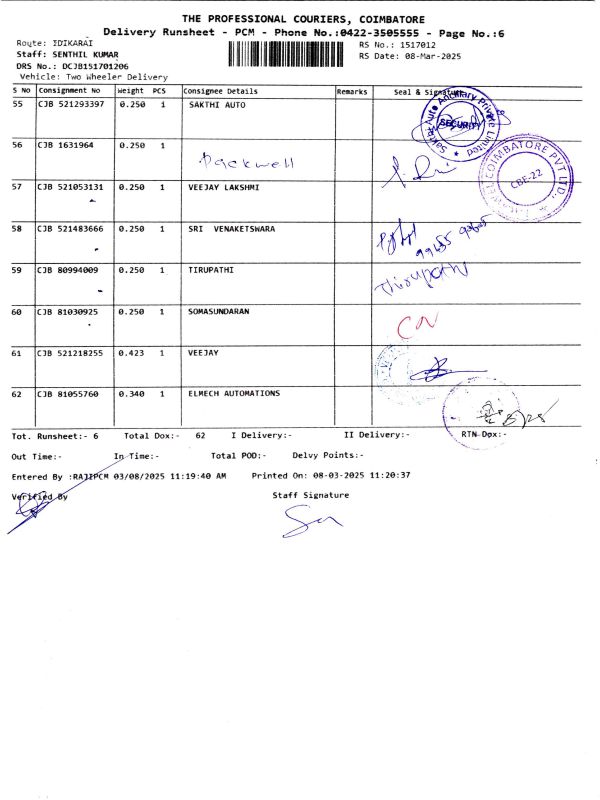 THE PROFESSIONAL COURIERS, COIMBATORE
Delivery Runsheet - PCM - Phone No.:0422-3505555 - Page No.:6
Route: IDIKARAI
RS No.: 1517012
Staff: SENTHIL KUMAR
RS Date: 08-Mar-2025
DRS No.: DCJB151701206
Vehicle: Two Wheeler Delivery
S No Consignment No Weight PCS Consignee Details Remarks Seal & Signature
55 CJB 521293397 0.250 1 SAKTHI AUTO
Sakthi Auto Ancillary Private Limited
SECURITY
56 CJB 1631964 0.250 1 Packwell
COIMBATORE PVT LTD.,
CBE-22
57 CJB 521053131 0.250 1 VEEJAY LAKSHMI
58 CJB 521483666 0.250 1 SRI VENAKETSWARA
59 CJB 80994009 0.250 1 TIRUPATHI Thirupathi
60 CJB 81030925 0.250 1 SOMASUNDARAN
61 CJB 521218255 0.423 1 VEEJAY
62 CJB 81055760 0.340 1 ELMECH AUTOMATIONS
Tot. Runsheet:- 6 Total Dox:- 62 I Delivery:- II Delivery:- RTN Dox:-
Out Time:- In Time:- Total POD:- Delvy Points:-
Entered By :RAJIPCM 03/08/2025 11:19:40 AM Printed On: 08-03-2025 11:20:37
Verified By Staff Signature